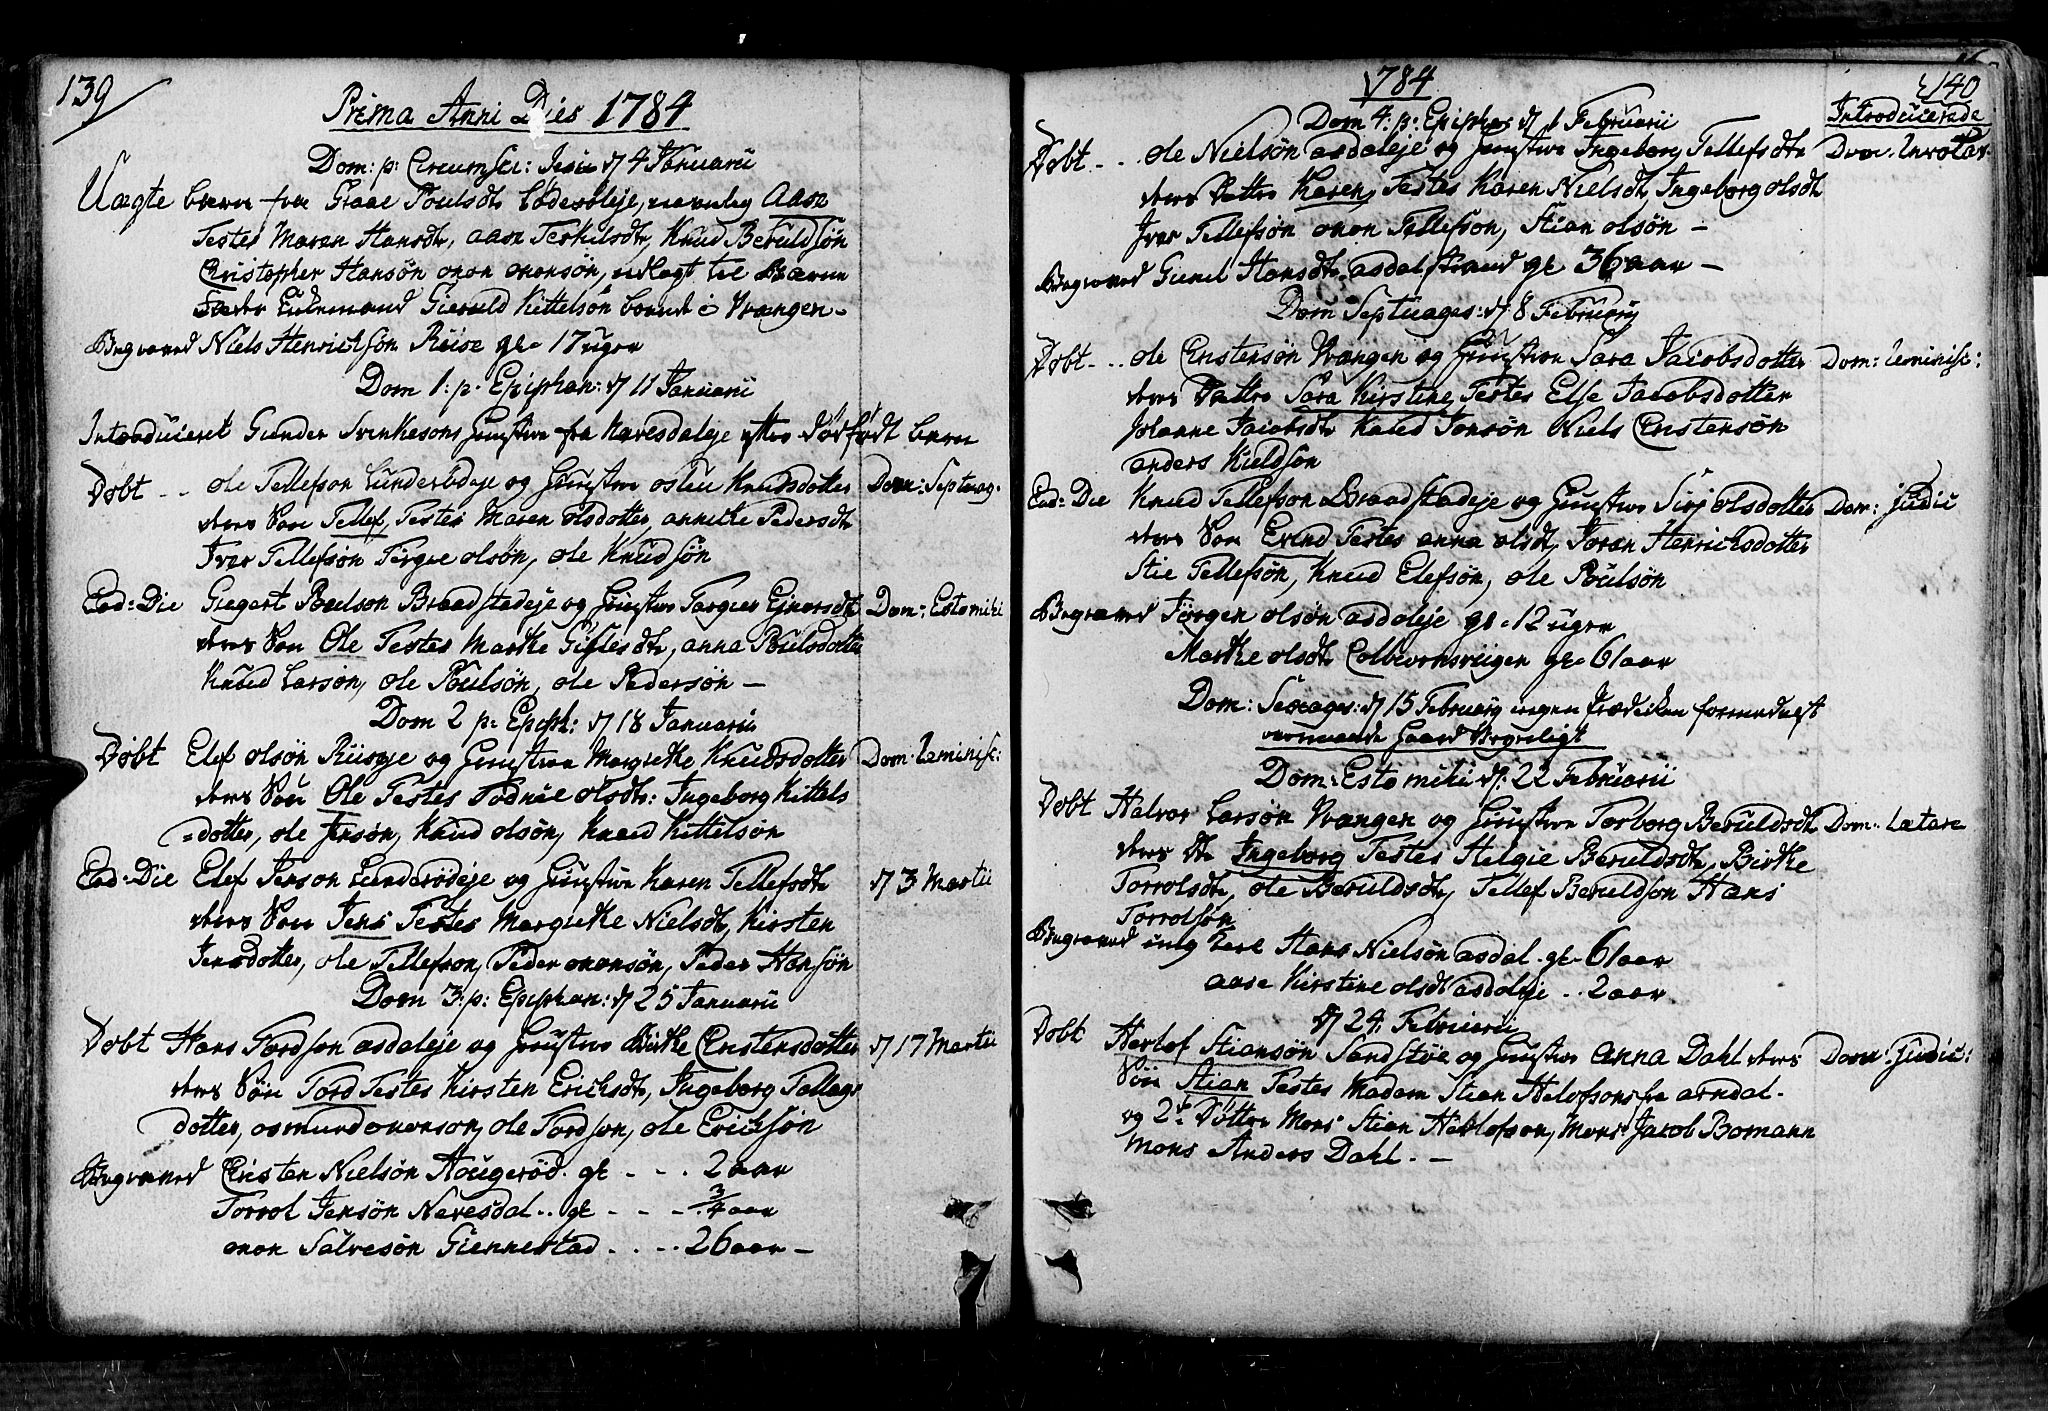 139
Prima Anni Dies 1784
Dom: p: Circumsci: Jesu d/ 4 Januarii
Uægte barn fra Graae Poulsdtr Lødesøleje, navnlig Aase
Testes Maren Hansdtr, aase Terkilsdtr, Knud Beruldsøn
Christopher Hansøn onon ononsøn, udlagt til Barne
Fader Gieruld Kittelsøn boende i Vrangen -
Begraved Niels Henrichsøn Ruise gl- 17 uger
Dom 1: p. Epiphan: d/ 11 Januarii
Introduceret Gunder Svenkesøns Hustrue fra Næresdaleje efter dødfødt barn
Døbt - - ole Tellefsøn Lunderødeje og Hustrue osleu Knudsdotter Dom: Septuag-
deres Søn Tellef, Testes Maren olsdotter, annicke Pedersdtr
Ivar Tellefsøn Tergie olsøn, ole Knudsøn
Ead: Die Giegert Poulson Braadstadeje og Hustrue Torgier Ejversdtr Dom: Estomihi
deres Søn Ole Testes Marthe Gislesdtr, anna Poulsdotter
Knud Larsøn, ole Poulsøn, ole Pedersøn -
Dom 2 p: Epiph: d/ 18 Januarii
Døbt Elef olsøn Ruseje og Hustrue Margrethe Knudsdotter Dom: Reminisc:
deres Søn Ole Testes Todnie olsdtr: Ingeborg Kittels
=dotter, ole Jensøn, Knud olsøn, Knud Kittelsøn
Ead: Die Elef Jensøn Lunderødeje og Hustrue Karen Tellefsdtr d/ 3 Martii
deres Søn Jens Testes Margrethe Nielsdtr, Kirsten
Jensdotter, ole Tellefson, Peder ononsøn, Peder Hansøn
Dom 3: p: Epiphan: d/ 25 Januarii
Døbt Hans Tordsøn asdaleje og Hustrue Birthe Christensdotter d/ 17 Martii
deres Søn Tord Testes Kirsten Erichsdtr, Ingeborg Tellegs
dotter, osmund ononson, ole Tordson, ole Erichsøn
Begraved Christen Nielsøn Hougerød. gl - - - 2 aar
Torrol Jensøn Neresdal - - gl - - - 3/4 aar
onon Salvesøn Giennestad - - - - 26 aar -
1784
140
Dom 4: p: Epiphan d/ 1 Februarii
Introducerede
Døbt - - ole Nielsøn asdaleje og Hustrue Ingeborg Tellefsdtr Dom: Invocav.
deres Datter Karen, Testes Karen Nielsdtr, Ingeborg olsdtr
Ivar Tellefsøn onon Tellefson, Stian olsøn -
Begraved Gunil Hansdtr asdalstrand gl 36 aar -
Dom Septuages: d/ 8 February
Døbt - - ole Christensøn Vrangen og Hustrue Sara Jacobsdotter Dom: Reminisc:
deres Datter Sara Kirstine, Testes Else Jacobsdotter
Johanne Jacobsdtr Knud Jonsøn Niels Christensøn
anders Kieldsøn
Ead: Die Knud Tellefson Braadstadeje og Hustrue Siri olsdotter Dom: Judic
deres Søn Evend Testes anna olsdtr, Joran Henrichsdotter
Stie Tellefsøn, Knud Elefsøn, ole Poulsøn
Begraved Jørgen olsøn asdaleje gl - 12 uger
Marthe olsdtr Colbiornsveigen gl- 61 aar
Dom: Sexages: d/ 15 February ingen Prædiken formedelst
Dom: Estomihi d/: 22 Februarii
Døbt Halvor Larsøn Vrangen og Hustrue Torborg Beruldsdtr Dom: Lætare
deres Dtr Ingeborg Testes Helgie Beruldsdtr, Birthe
Torrolsdtr, ole Beruldsdtr, Tellef Beruldson Hans
Torrolsøn
Begraved ung karl Hans Nielsøn asdal. gl- 61 aar
aase Kirstine olsdtr asdaleje - - 2 aar
d/ 24. Februarii
Døbt Herlof Stiansøn Sandstøe og Hustrue Anna Dahl deres Dom: Judic:
Søn Stian Testes Madam Stian Helofsons fra arndal.
og 2de Døttre Mons Stian Herlofson, Mons Jacob Bomann
Mons Anders Dahl. -